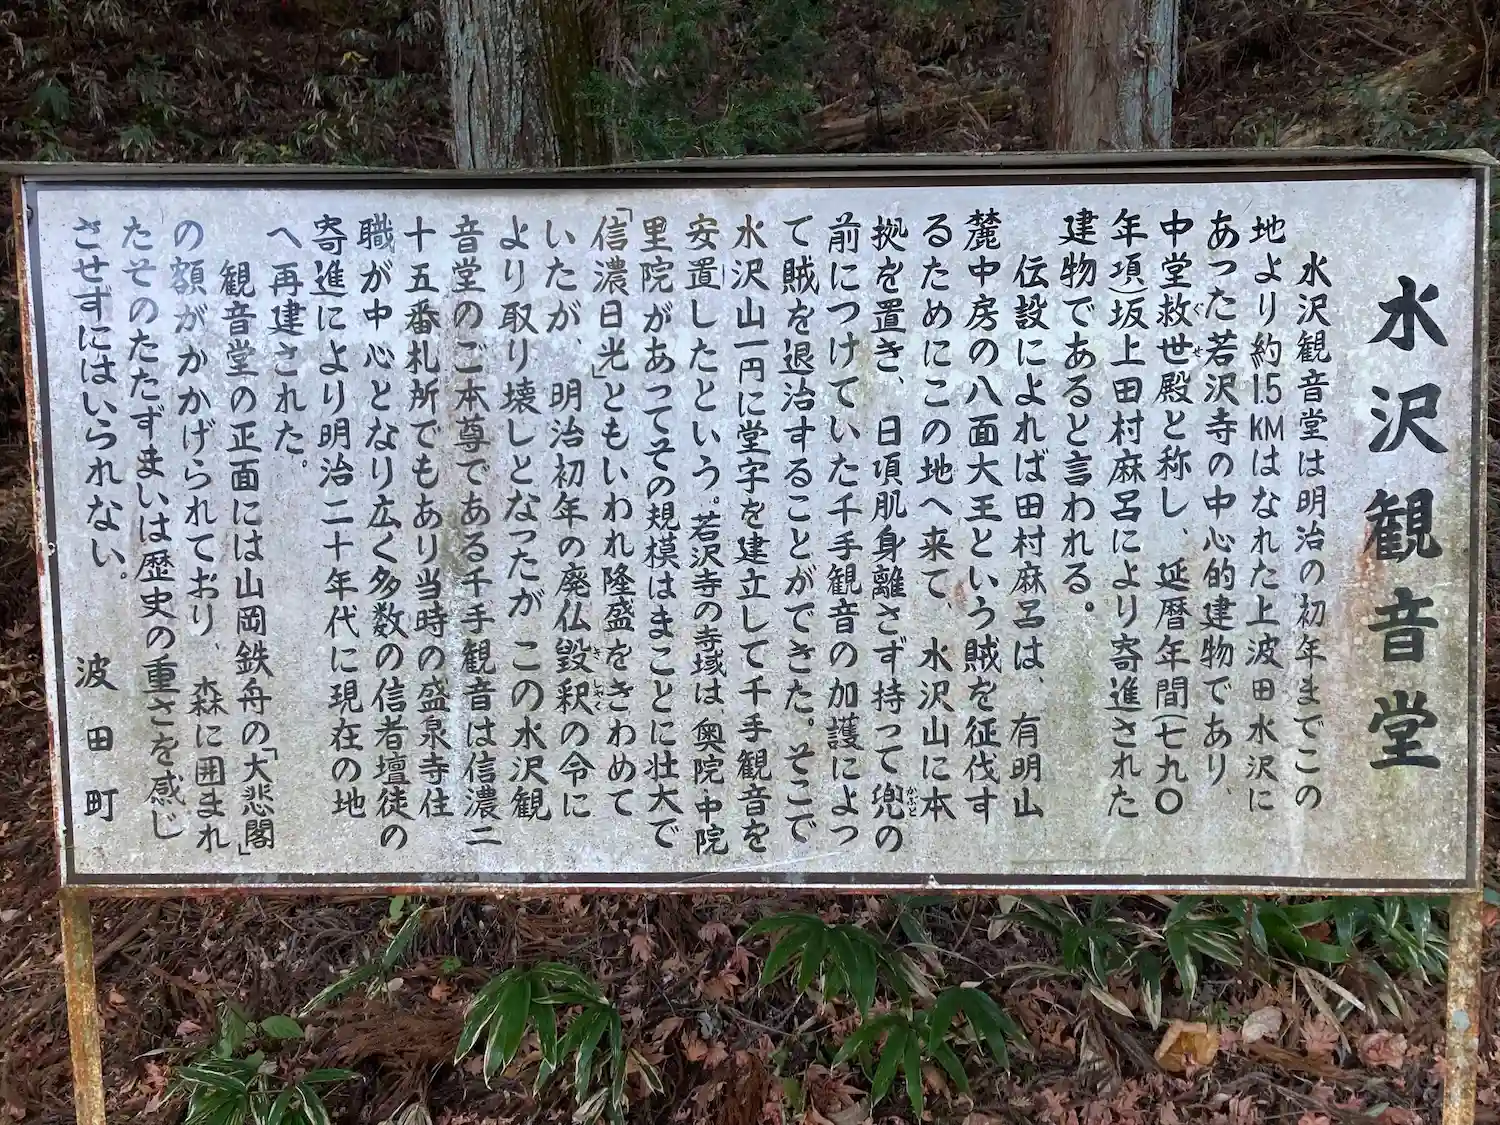 水沢観音堂
水沢観音堂は明治の初年までこの
地より約1.5KMはなれた上波田水沢に
あった若沢寺の中心的建物であり、
中堂救世殿と称し、延暦年間(七九〇
ぐせ
年項)坂上田村麻呂により寄進された
建物であると言われる。
伝設によれば田村麻呂は、有明山
麓中房の八面大王という賊を征伐す
るためにこの地へ来て、水沢山に本
拠を置き、日項肌身離さず持って兜の
かぶと
前につけていた千手観音の加護によっ
て賊を退治することができた。そこで
水沢山一円に堂宇を建立して千手観音を
安置したという。若沢寺の寺域は奥院・中院
里院があってその規模はまことに壮大で
「信濃日光」ともいわれ隆盛をきわめて
いたが、明治初年の廃仏毀釈の令に
きしゃく
より取り壊しとなったが この水沢観
音堂のご本尊である千手観音は信濃二
十五番札所でもあり当時の盛泉寺住
職が中心となり広く多数の信者壇徒の
寄進により明治二十年代に現在の地
へ再建された。
観音堂の正面には山岡鉄舟の「大悲閣」
の額がかかげられており、森に囲まれ
たそのたたずまいは歴史の重さを感じ
させずにはいられない。
波田町